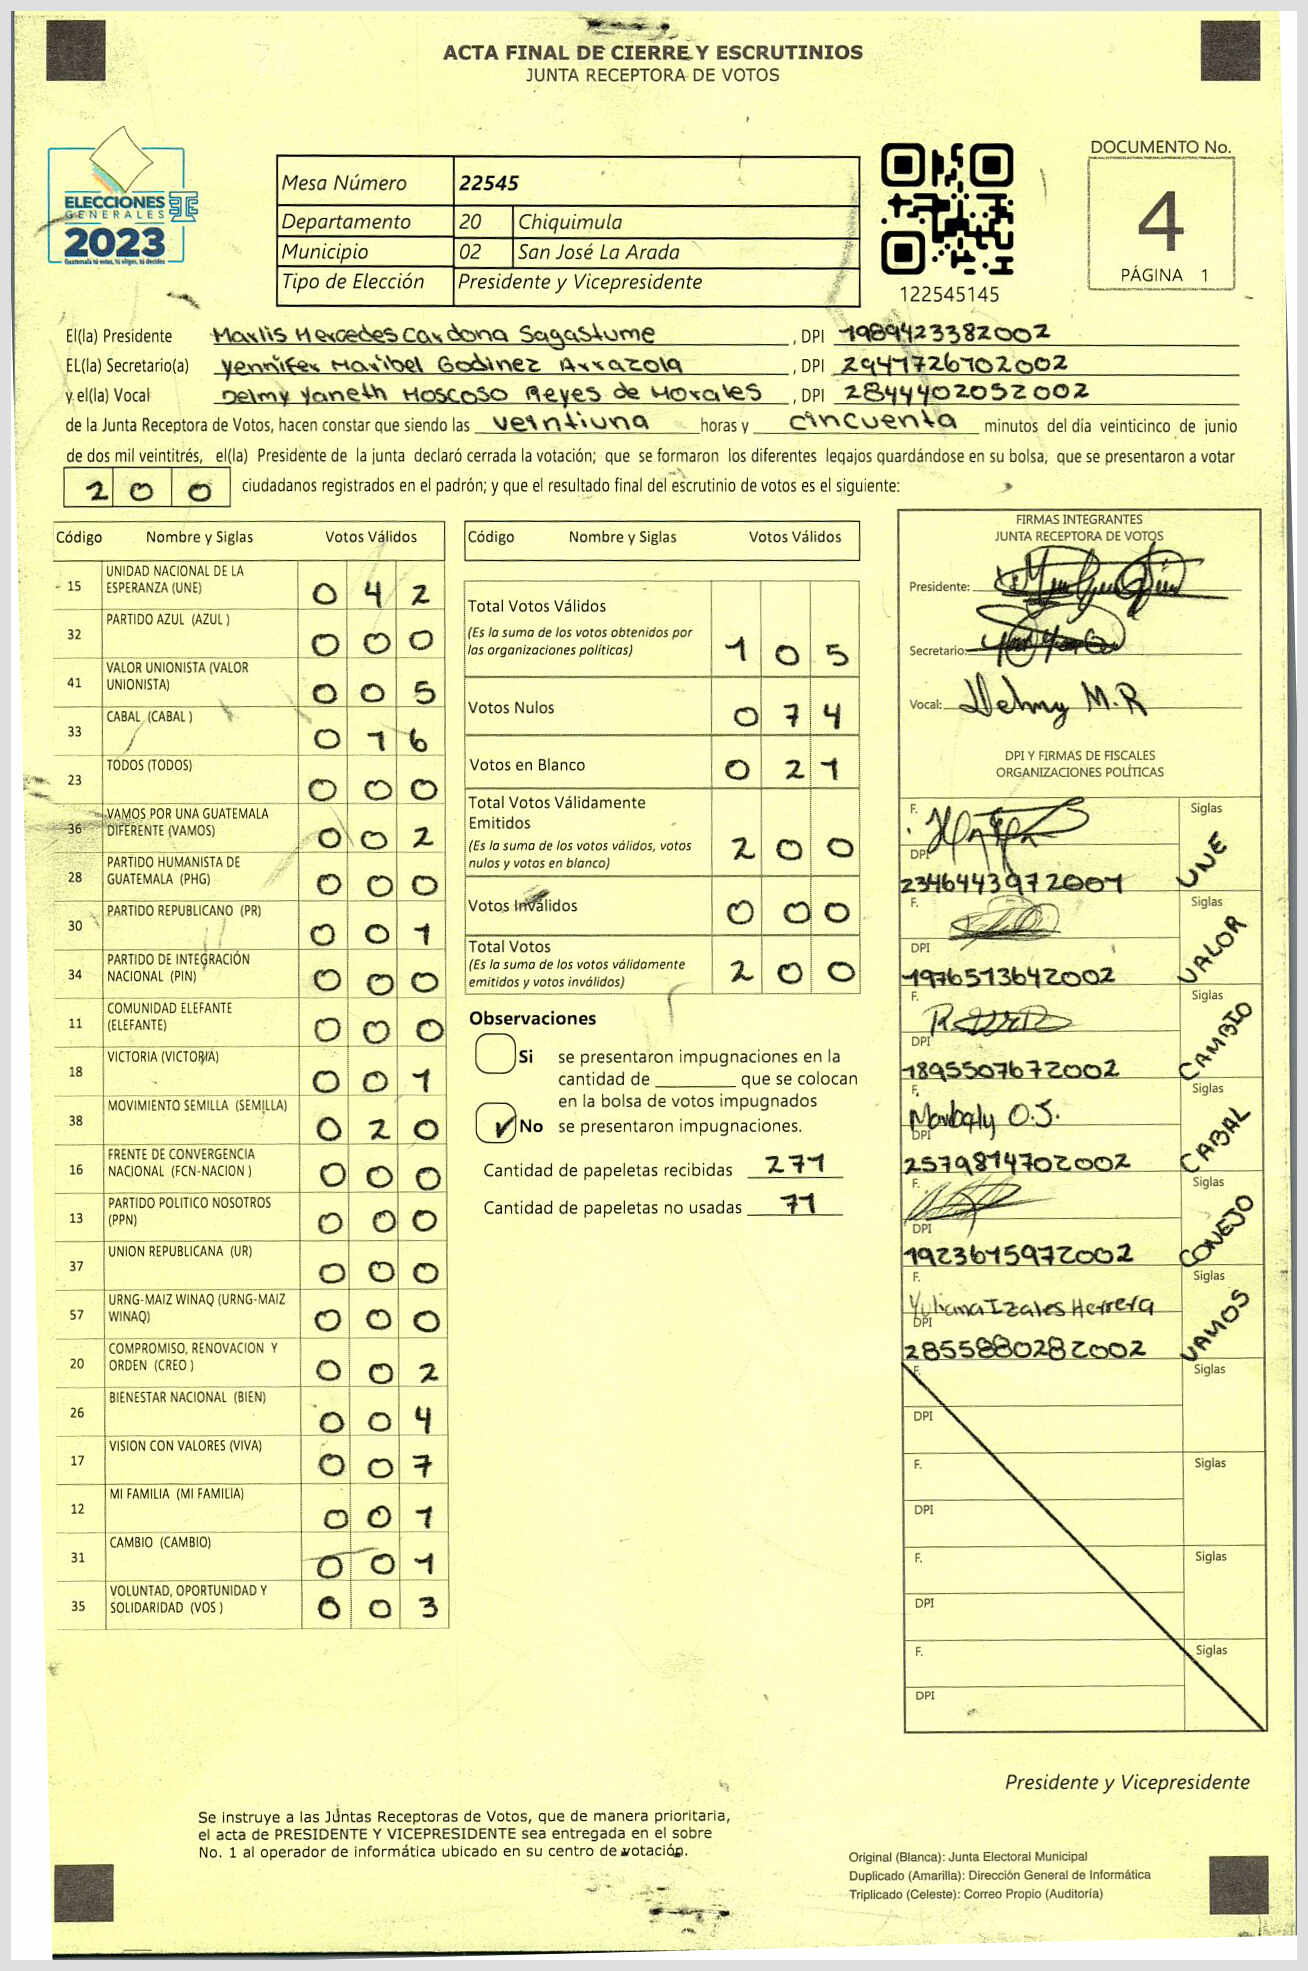 ACTA FINAL DE CIERRE Y ESCRUTINIOS
JUNTA RECEPTORA DE VOTOS
DOCUMENTO No.
4
PÁGINA 1
ELECCIONES
GENERALES
2023
Guatemala tú votas, tú eliges, tú decides
Mesa Número 22545
Departamento 20 Chiquimula
Municipio 02 San José La Arada
Tipo de Elección Presidente y Vicepresidente
122545145
El(la) Presidente Marlis Mercedes Cardona Sagastume , DPI 1989423382002
EL(la) Secretario(a) Yennifer Maribel Godinez Arrazola , DPI 2947726702002
y el(la) Vocal Delmy Yaneth Moscoso Reyes de Morales , DPI 2844402052002
de la Junta Receptora de Votos, hacen constar que siendo las veintiuna horas y cincuenta minutos del día veinticinco de junio
de dos mil veintitrés, el(la) Presidente de la junta declaró cerrada la votación; que se formaron los diferentes legajos guardándose en su bolsa, que se presentaron a votar
2 0 0 ciudadanos registrados en el padrón; y que el resultado final del escrutinio de votos es el siguiente:
Código Nombre y Siglas Votos Válidos
15 UNIDAD NACIONAL DE LA
ESPERANZA (UNE) 0 4 2
32 PARTIDO AZUL (AZUL ) 0 0 0
41 VALOR UNIONISTA (VALOR
UNIONISTA) 0 0 5
33 CABAL (CABAL ) 0 1 6
23 TODOS (TODOS) 0 0 0
36 VAMOS POR UNA GUATEMALA
DIFERENTE (VAMOS) 0 0 2
28 PARTIDO HUMANISTA DE
GUATEMALA (PHG) 0 0 0
30 PARTIDO REPUBLICANO (PR) 0 0 1
34 PARTIDO DE INTEGRACIÓN
NACIONAL (PIN) 0 0 0
11 COMUNIDAD ELEFANTE
(ELEFANTE) 0 0 0
18 VICTORIA (VICTORIA) 0 0 1
38 MOVIMIENTO SEMILLA (SEMILLA) 0 2 0
16 FRENTE DE CONVERGENCIA
NACIONAL (FCN-NACION ) 0 0 0
13 PARTIDO POLITICO NOSOTROS
(PPN) 0 0 0
37 UNION REPUBLICANA (UR) 0 0 0
57 URNG-MAIZ WINAQ (URNG-MAIZ
WINAQ) 0 0 0
20 COMPROMISO, RENOVACION Y
ORDEN (CREO ) 0 0 2
26 BIENESTAR NACIONAL (BIEN) 0 0 4
17 VISION CON VALORES (VIVA) 0 0 7
12 MI FAMILIA (MI FAMILIA) 0 0 1
31 CAMBIO (CAMBIO) 0 0 1
35 VOLUNTAD, OPORTUNIDAD Y
SOLIDARIDAD (VOS ) 0 0 3
Código Nombre y Siglas Votos Válidos
Total Votos Válidos
(Es la suma de los votos obtenidos por
las organizaciones políticas) 1 0 5
Votos Nulos 0 7 4
Votos en Blanco 0 2 1
Total Votos Válidamente
Emitidos
(Es la suma de los votos válidos, votos
nulos y votos en blanco) 2 0 0
Votos Inválidos 0 0 0
Total Votos
(Es la suma de los votos válidamente
emitidos y votos inválidos) 2 0 0
Observaciones
Si se presentaron impugnaciones en la
cantidad de ________ que se colocan
en la bolsa de votos impugnados
No se presentaron impugnaciones.
Cantidad de papeletas recibidas 271
Cantidad de papeletas no usadas 71
FIRMAS INTEGRANTES
JUNTA RECEPTORA DE VOTOS
Presidente:
Secretario:
Vocal: Delmy M.R
DPI Y FIRMAS DE FISCALES
ORGANIZACIONES POLÍTICAS
F. Siglas
DPI
2346443972001 UNE
F. Siglas
DPI
1976513642002 VALOR
F. Siglas
DPI
1895507672002 CAMBIO
F. Siglas
Marbely O.J.
DPI
2579814702002 CABAL
F. Siglas
DPI
1923615972002 CONEJO
F. Siglas
Yuliana Izales Herrera
DPI
2855880282002 VAMOS
F. Siglas
DPI
F. Siglas
DPI
F. Siglas
DPI
F. Siglas
DPI
Presidente y Vicepresidente
Se instruye a las Juntas Receptoras de Votos, que de manera prioritaria,
el acta de PRESIDENTE Y VICEPRESIDENTE sea entregada en el sobre
No. 1 al operador de informática ubicado en su centro de votación.
Original (Blanca): Junta Electoral Municipal
Duplicado (Amarilla): Dirección General de Informática
Triplicado (Celeste): Correo Propio (Auditoría)